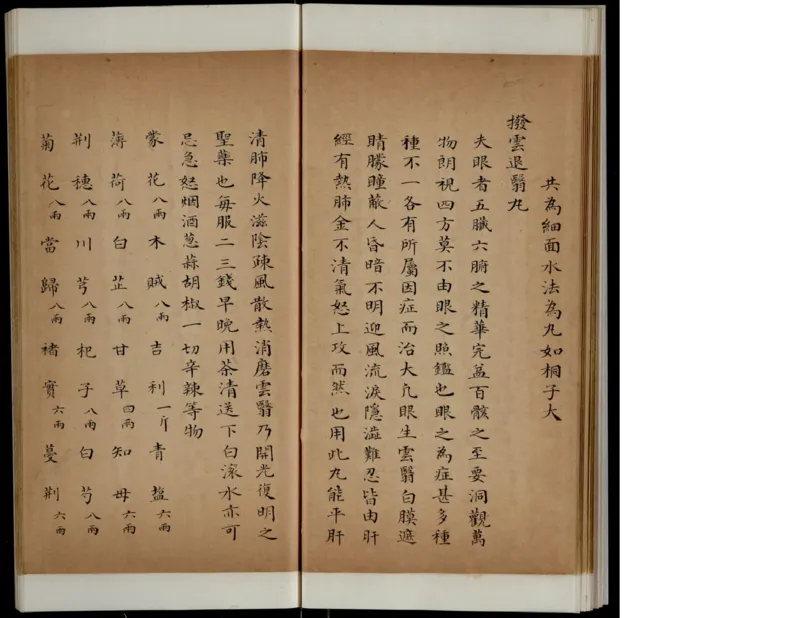 共為細面水法為丸如桐子大
撥雲退翳丸
夫眼者五臟六腑之精華完益百骸之至要洞觀萬
物朗視四方莫不由眼之照鑑也眼之為症甚多種
種不一各有所屬因症而治大凡眼生雲翳白膜遮
睛矇瞳蔽人昏暗不明迎風流淚隱澁難忍皆由肝
經有熱肺金不清氣怒上攻而然也用此丸能平肝
清肺降火滋陰疎風散熱消磨雲翳乃開光復明之
聖藥也每服二三錢早晚用茶清送下白滚水亦可
忌急怒烟酒葱蒜胡椒一切辛辣等物
蒙花八兩木賊八兩吉利一斤青盐六兩
薄荷八兩白芷八兩甘草四兩知母六兩
荆穗八兩川芎八兩杞子八兩白芍八兩
菊花八兩當歸八兩褚實六兩蔓荆六兩